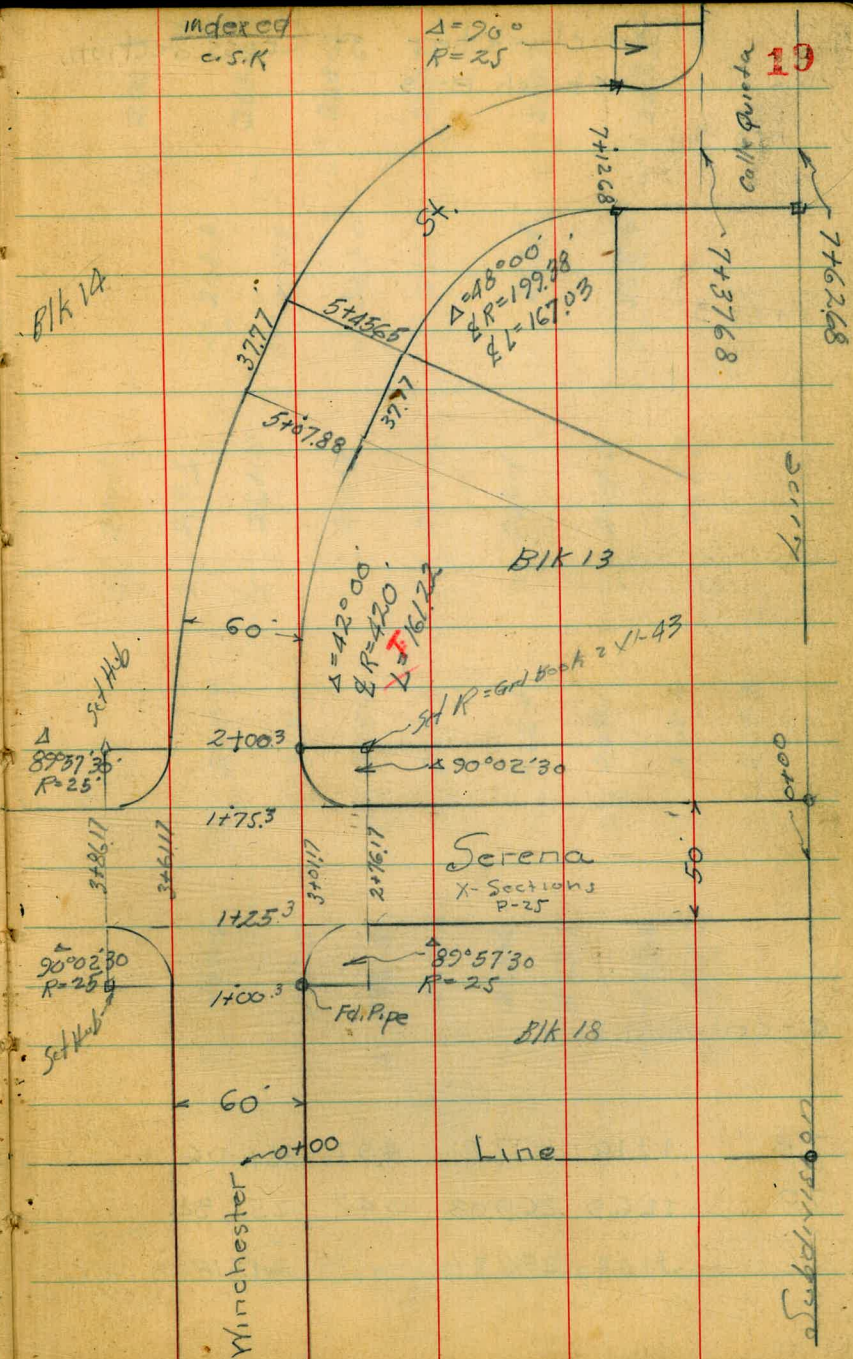 indexed
c.s.K
Δ=90°
R=25
19
Calle Quieta
7+12.68
7+37.68
7+62.68
St.
Blk 14
Δ=48°00'
R=199.38'
L=167.03
5+45.65
37.77
37.77
5+07.88
Blk 13
Line
60'
Δ=42°00'
R=420'
T=161.22
Set Hub
Set R=Grd Book 2 XI-43
Δ
89°57'30"
R=25'
2+00.3
Δ90°02'30
0+00
1+75.3
3+86.17
3+61.17
3+01.17
2+76.17
Serena
X-Sections
P-25
50'
1+25.3
Δ
90°02'30
R=25
Δ
89°57'30
R=25
1+00.3
Fd. Pipe
Set Hub
Blk 18
60'
0+00
Line
Winchester
Subdivision